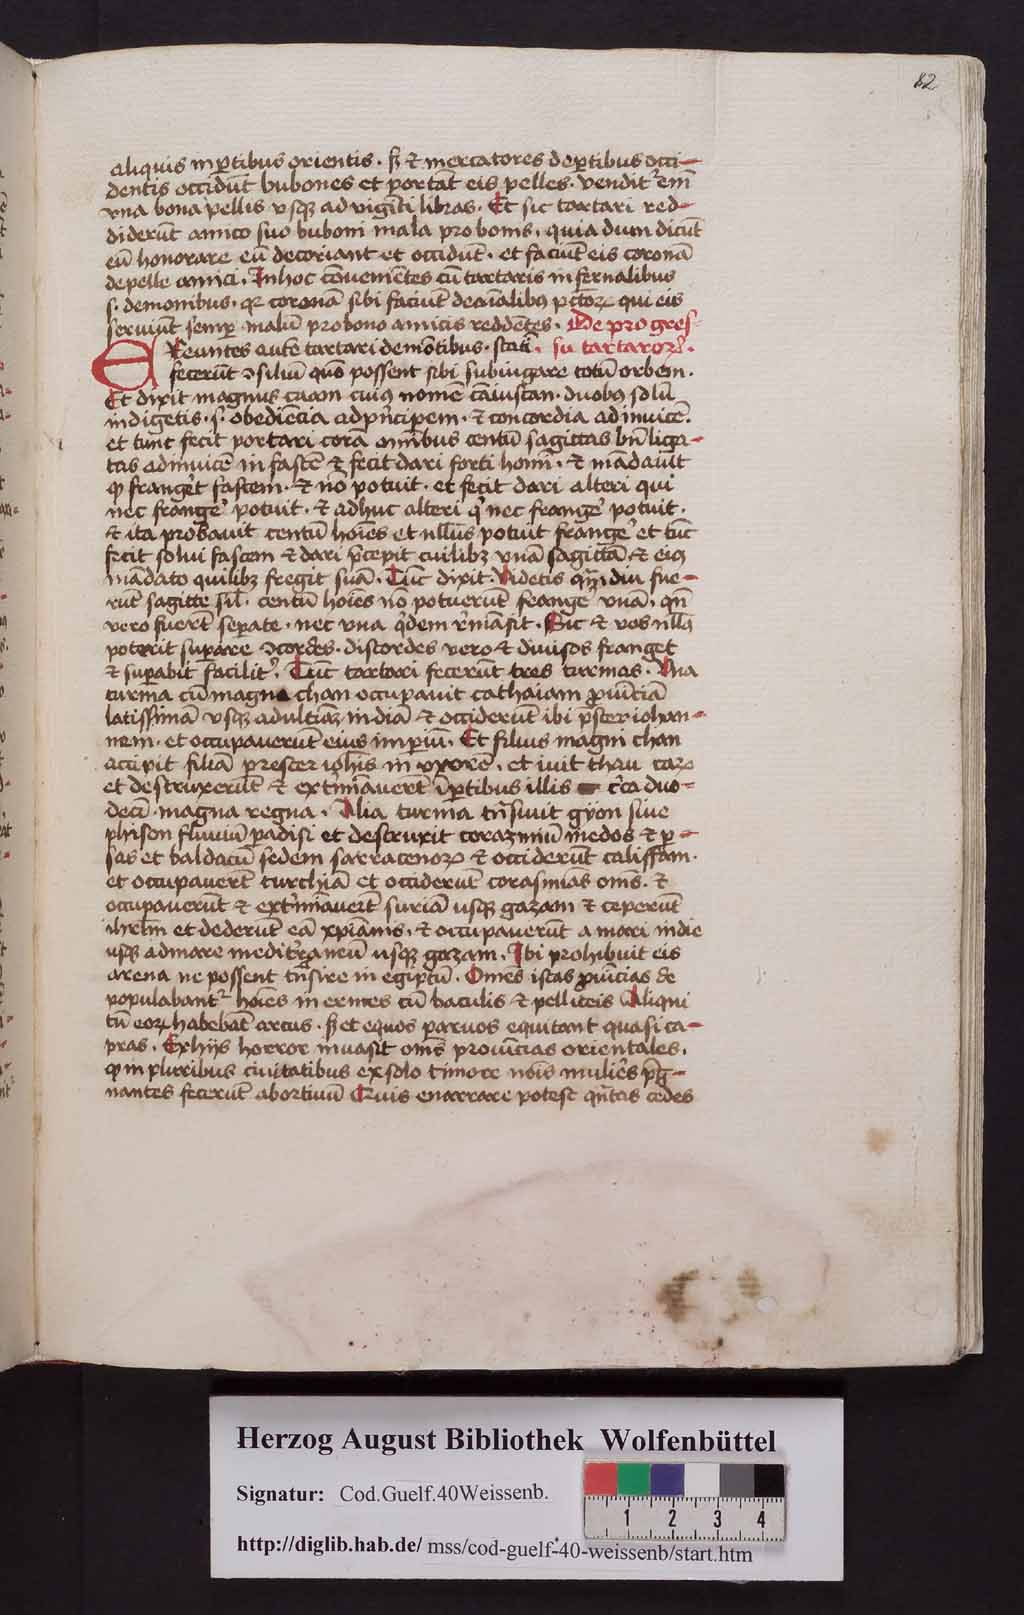 82
aliquis in ꝑtibus orientis · ſꝫ ⁊ mercatores de ꝑtibus occi-
dentis occidūt bubones et portāt eis pelles · vendit᷑ em̄
vna bona pellis vsqꝫ ad viginti libras · Et sic tartari red-
diderūt amico suo buboni mala pro bonis · quia dum dicūt
eū honorare eū decoriant et occidūt · et faciūt eis coronā
de pelle amici · In hoc cōuenientes cū tartaris infernalibus
s · demonibus · qꝛ coronā sibi faciūt de aīalibꝰ pctōꝝ qui eis
seruiūt semꝑ · malū pro bono amicis reddentes · De progres-
Exeuntes aute tartari de mōtibus · statī · su tartaroꝝ ·
fecerūt ↄsiliū quō possent sibi subiugare totū orbem ·
Et dixit magnus caam cuiꝰ nomē cāiuscan · duobꝰ solū
indigetis · s · obediēcia ad pⁱncipem · ⁊ concordia adinuicē ·
et tunc fecit portari corā omībus centū sagittas bn̄ liga-
tas adinuicē in fascē ⁊ fecit dari forti homī · ⁊ mādauit
ꝙ frangeꝛet fascem · ⁊ nō potuit · et fecit dari alteri qui
nec frangeꝛ potuit · ⁊ adhuc alteri qⁱ nec frangeꝛ potuit ·
⁊ ita probauit centū hoīes et nllūs potuit frangeꝛ et tūc
fecit solui fascem ⁊ dari p̄cepit cuilibꝫ vnā sagittā ⁊ eiꝰ
mādato quilibꝫ fregit suā · Tūc dixit · Videtis qm̄diu fue-
rūt sagitte sil̄ · centū hoīes nō potuerūt frangeꝛ vnā · qn̄
vero fuerūt seꝑate · nec vna qⁱdem rⁱmāsit · Sic ⁊ vos nllꝰ
poterit suꝑare ↄcordes · discordes vero ⁊ diuisos franget
⁊ suꝑabit facilitꝛ · Tūc tartari fecerūt tres turmas · Una
turma cū magna chan occupauit cathaiam ꝓuīciā
latissimā vsqꝫ ad ultimā indiā ⁊ occiderūt ibi p̄ster iohan-
nem · et occupauerūt eius imꝑiū · Et filius magni chan
accipit filiā prester iohīs in vxorē · et iuit than caꝝ
et destruxerūt ⁊ extmīauerūt ī ꝑtibus illis cⁱca duo-
decī magna regna · Alia turma tn̄siuit gyon siue
phison fluuiū paradisi et destruxit corazminū medos ⁊ ꝑ-
sas et baldacū sedem sarracenoꝝ ⁊ occiderūt califfam ·
et occupauerūt turchiā et occiderūt corasmias om̄s · ⁊
occupauerūt ⁊ extⁱmīauerūt suriā usqꝫ gazam ⁊ ceperūt
ihrlm̄ et dederūt eā xp̄ianis · ⁊ occupauerūt a mari indie
usqꝫ ad mare meditꝛraneū usqꝫ gazam · Ibi prohibuit eis
arena ne possent tn̄sire in egiptū · Omēs istas ꝓuīcias de
populabantꝛ hoīes inermes cū baculis ⁊ pelliceis Aliqui
tn̄ eoꝝ habebāt arcus · ſꝫ et equos paruos equitant quasi ca-
pras · Ex hijs horror inuasit om̄s prouīcias orientales ·
ꝙ in pluribus ciuitatibus ex solo timore nois mulies p̄g-
nantes fecerūt abortiuū Quis enarrare potest qn̄tas cedes
Herzog August Bibliothek Wolfenbüttel
Signatur: Cod.Guelf.40Weissenb.
1 2 3 4
http://diglib.hab.de/ mss/cod-guelf-40-weissenb/start.htm